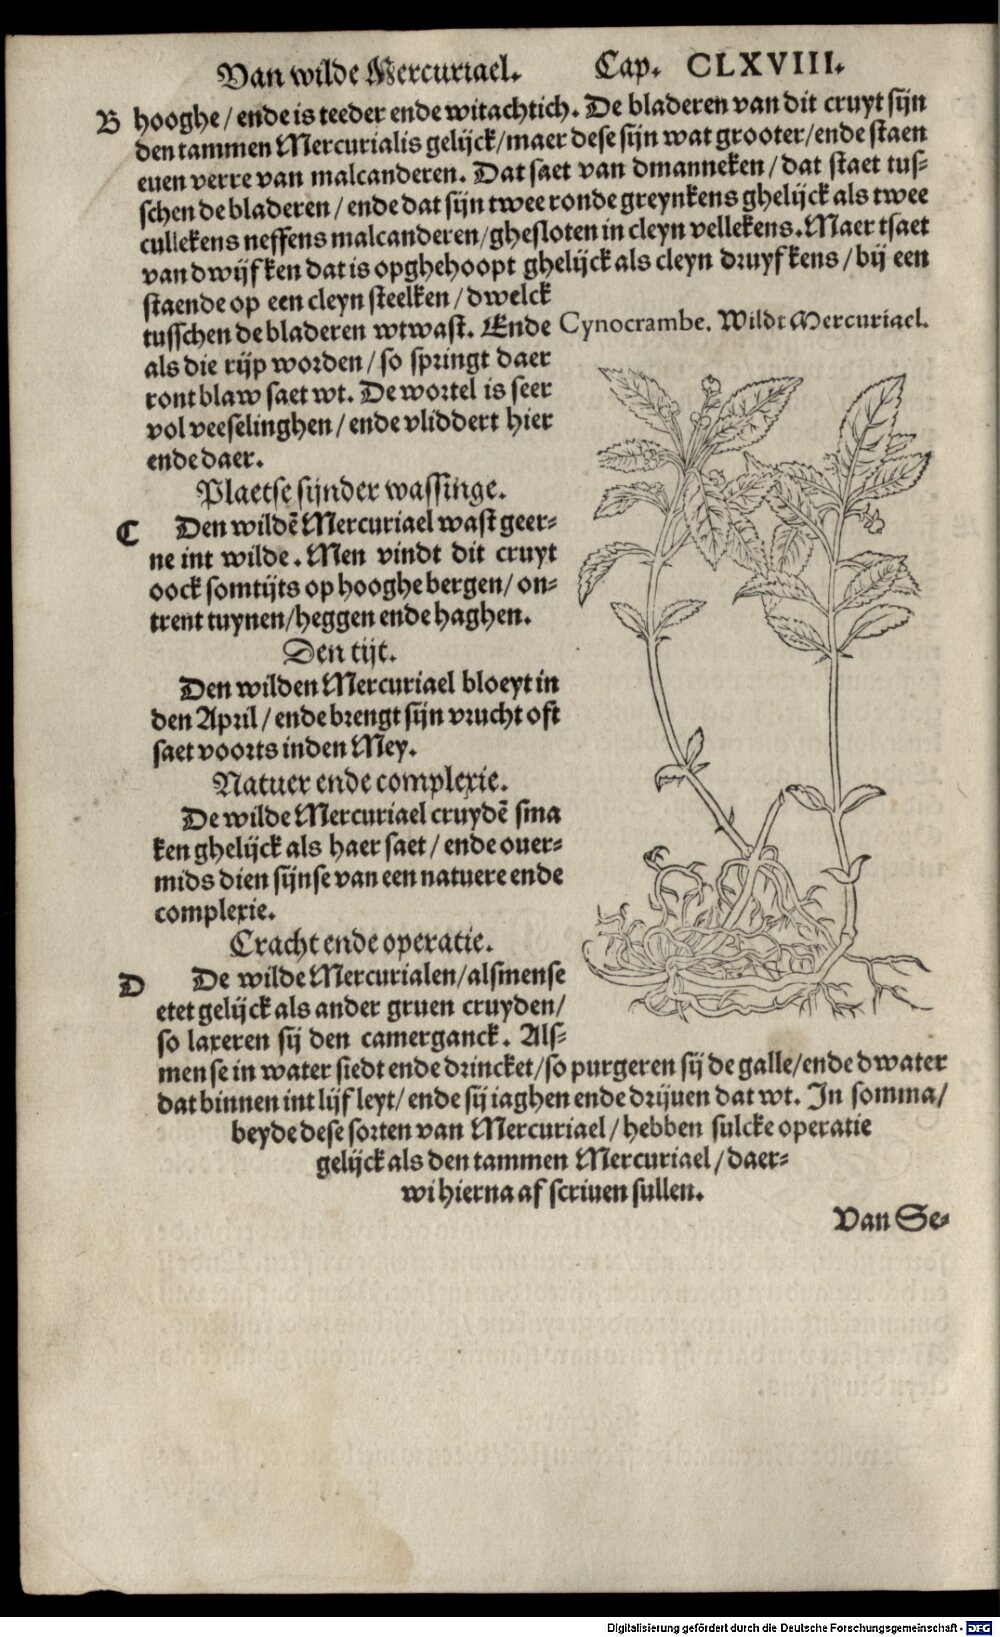 Van wilde Mercuriael. Cap. CLXVIII.
B hooghe / ende is teeder ende witachtich. De bladeren van dit cruyt sijn
den tammen Mercurialis gelijck / maer dese sijn wat grooter / ende staen
euen verre van malcanderen. Dat saet van dmanneken / dat staet tus-
schen de bladeren / ende dat sijn twee ronde greynkens ghelijck als twee
cullekens neffens malcanderen / ghesloten in cleyn vellekens. Maer tsaet
van dwijfken dat is opghehoopt ghelijck als cleyn druyfkens / bij een
staende op een cleyn steelken / dwelck
tusschen de bladeren wtwast. Ende
als die rijp worden / so springt daer
ront blaw saet wt. De wortel is seer
vol veeselinghen / ende vliddert hier
ende daer.
Cynocrambe. Wildt Mercuriael.
Plaetse sijnder wassinge.
C Den wildē Mercuriael wast geer-
ne int wilde. Men vindt dit cruyt
oock somtijts op hooghe bergen / on-
trent tuynen / heggen ende haghen.
Den tijt.
Den wilden Mercuriael bloeyt in
den April / ende brengt sijn vrucht oft
saet voorts inden Mey.
Natuer ende complexie.
De wilde Mercuriael cruydē sma
ken ghelijck als haer saet / ende ouer-
mids dien sijnse van een natuere ende
complexie.
Cracht ende operatie.
D De wilde Mercurialen / alsmense
etet gelijck als ander gruen cruyden /
so laxeren sij den camerganck. Als-
men se in water siedt ende drincket / so purgeren sij de galle / ende dwater
dat binnen int lijf leyt / ende sij iaghen ende drijuen dat wt. In somma /
beyde dese sorten van Mercuriael / hebben sulcke operatie
gelijck als den tammen Mercuriael / daer-
wi hierna af scriuen sullen.
Van Se-
Digitalisierung gefördert durch die Deutsche Forschungsgemeinschaft - DFG